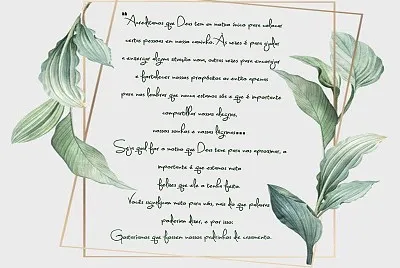 "Acreditamos que Deus tem um motivo único para colocar
certas pessoas em nosso caminho. Às vezes é para ajudar
a enxergar alguma situação nova, outras vezes para encorajar
e fortalecer nossos propósitos ou então apenas
para nos lembrar que nunca estamos sós e que é importante
compartilhar nossas alegrias,
nossos sonhos e nossas lágrimas...
Seja qual for o motivo que Deus teve para nos aproximar, o
importante é que estamos muito
felizes que ele o tenha feito.
Vocês significam muito para nós, mais do que palavras
poderiam dizer, e por isso:
Gostaríamos que fossem nossos padrinhos de casamento.